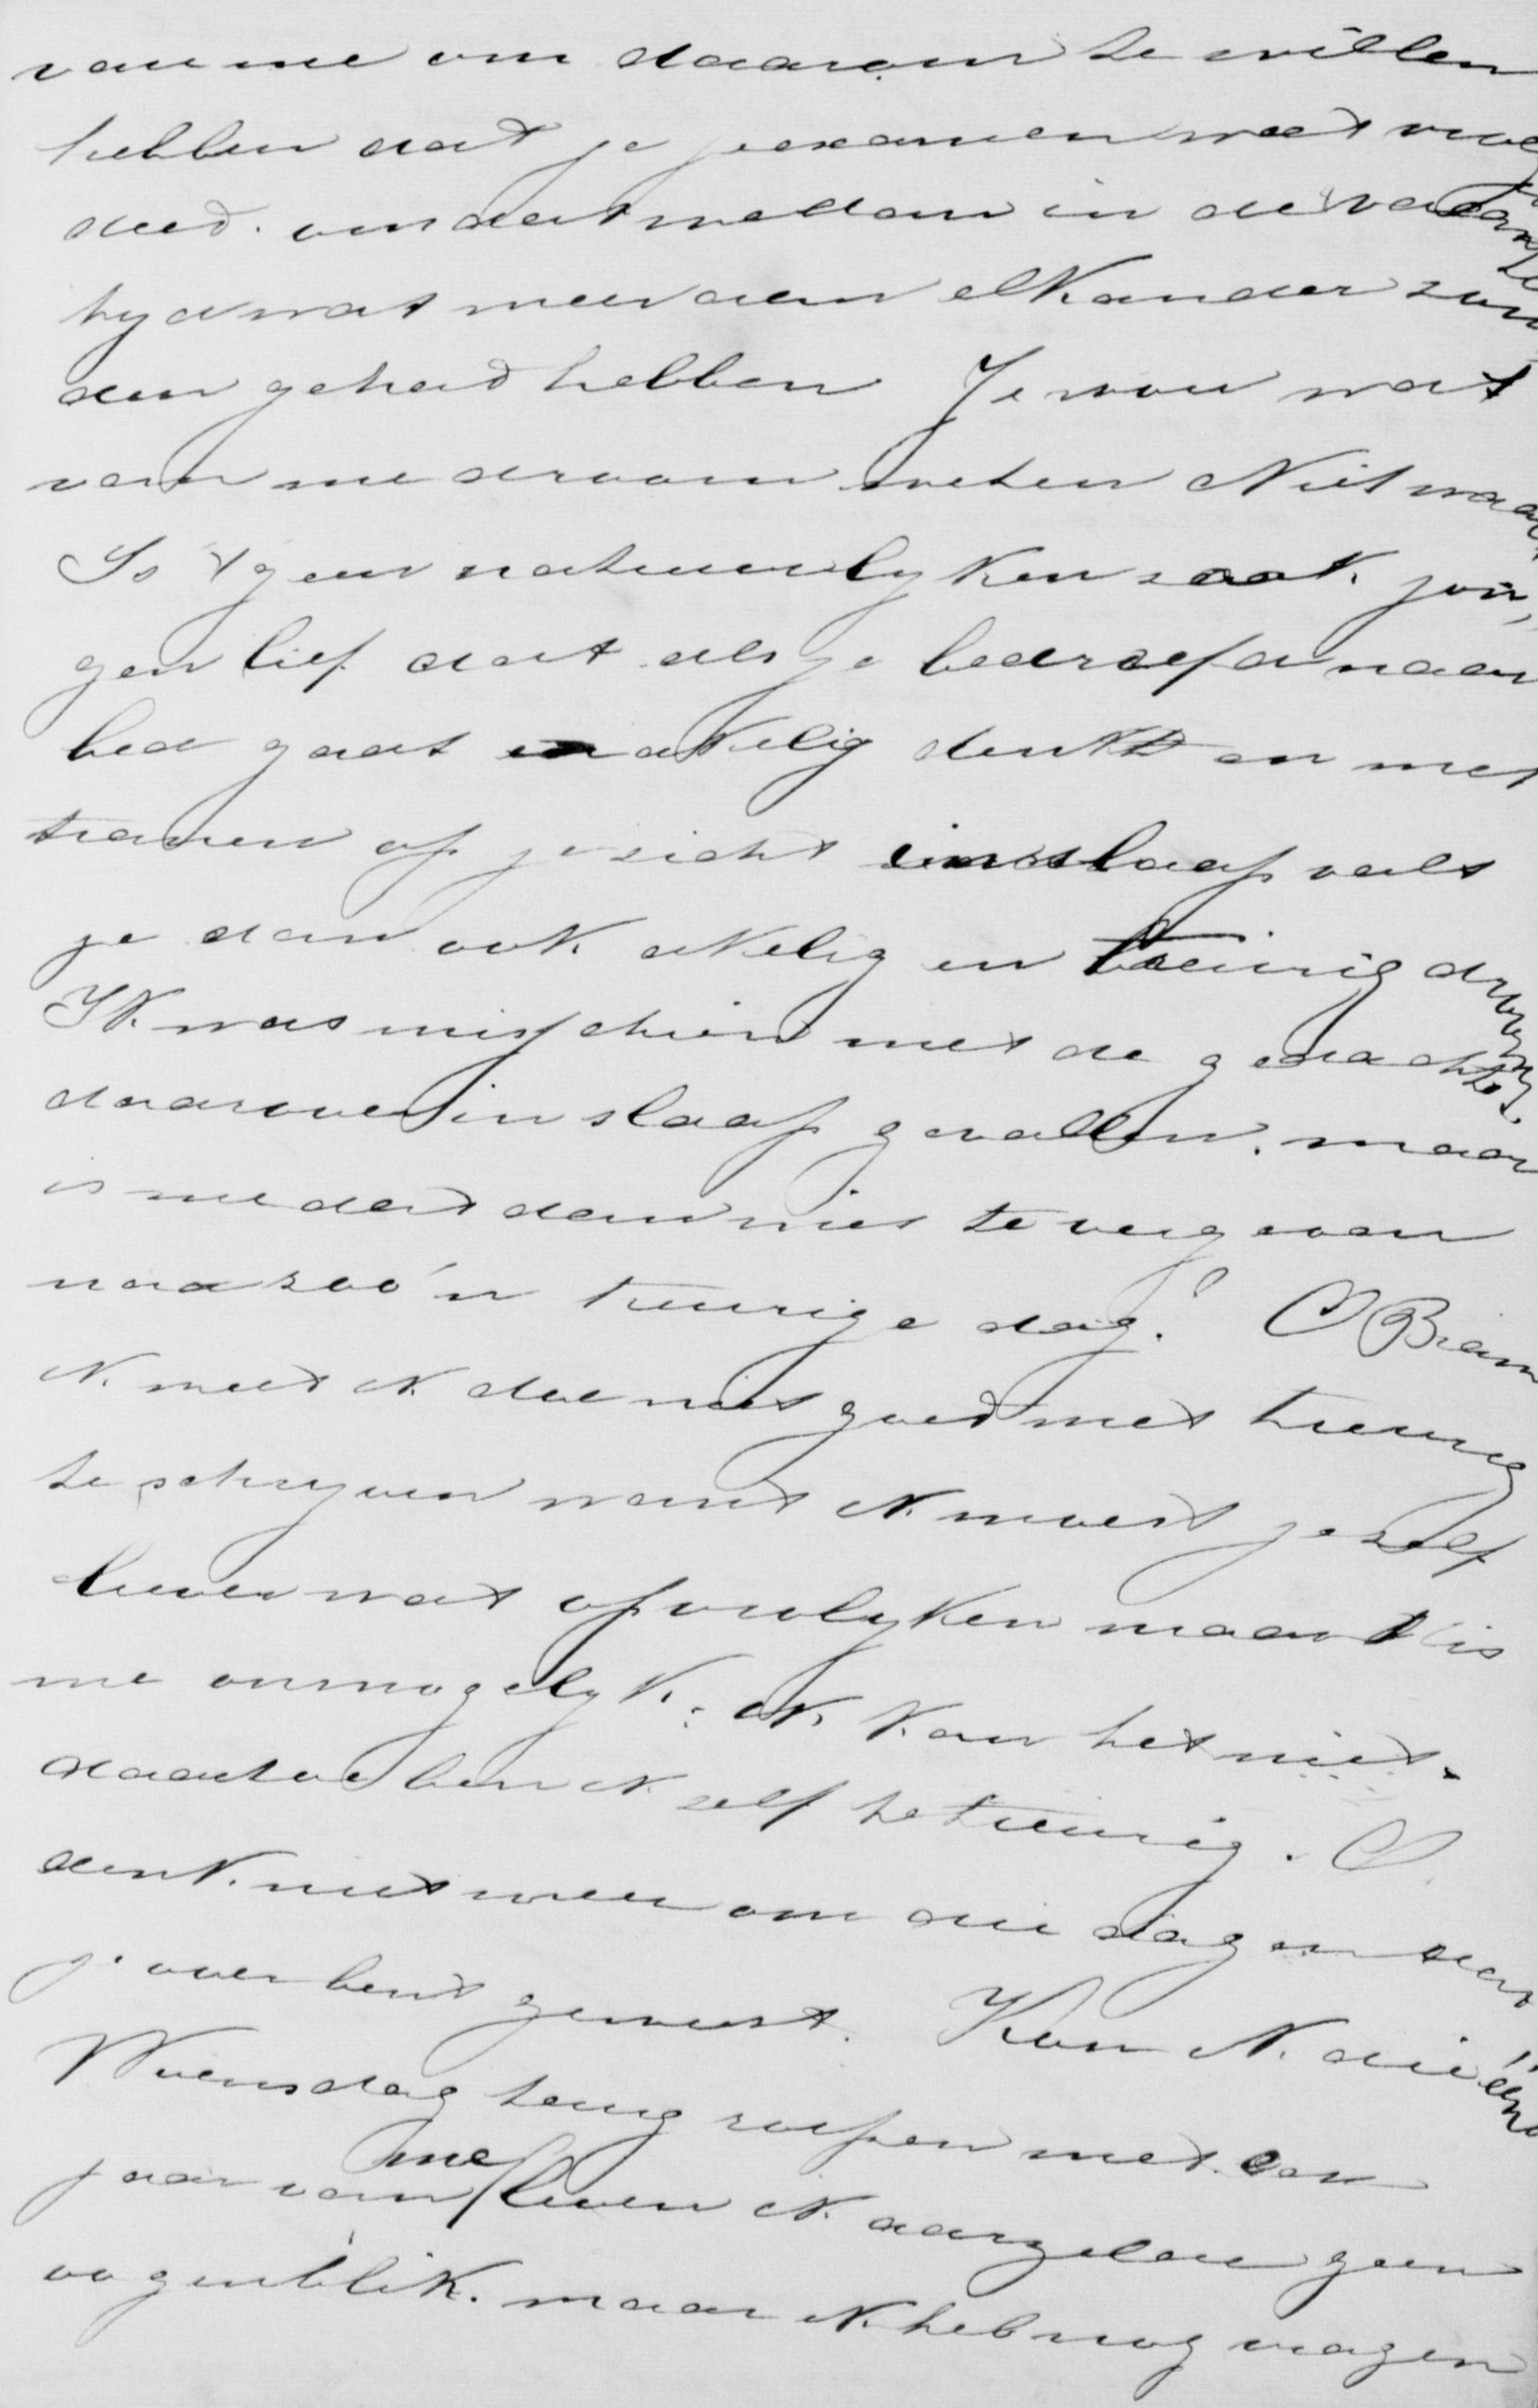 van me om daarom te willen
hebben dat je je examen wat vroeg
deed. omdat we dan in de vacantie
tyd wat meer aan elkander zou
den gehad hebben Je wou wat
van me droom weten Niet waar
Is 't geen natuurlyken zaak jon,
gen lief dat als je bedroefd naar
bed gaat en akelig denkt en met
tranen op je zicht in slaap valt
je dan ook akelig en treurig droomt.
Ik was misschien met de gedachte
daarover in slaap gevallen. maar
is me dat dan niet te vergeven
naa zoo'n treurige dag? O Bram
'k weet 'k doe niet goed met treurig
te schryven want 'k moest je zelf
liever wat opvrolyken maar 't is
me onmogelyk; 'k kan het niet.
daartoe ben 'k zelf te treurig. O
denk niet meer om die dagen dat
j' over bent geweest. Kon 'k die ééne
Woensdag terug roepen met een
jaar van me leven 'k aarzelde geen
oogenblik. maar 'k heb nog vragen